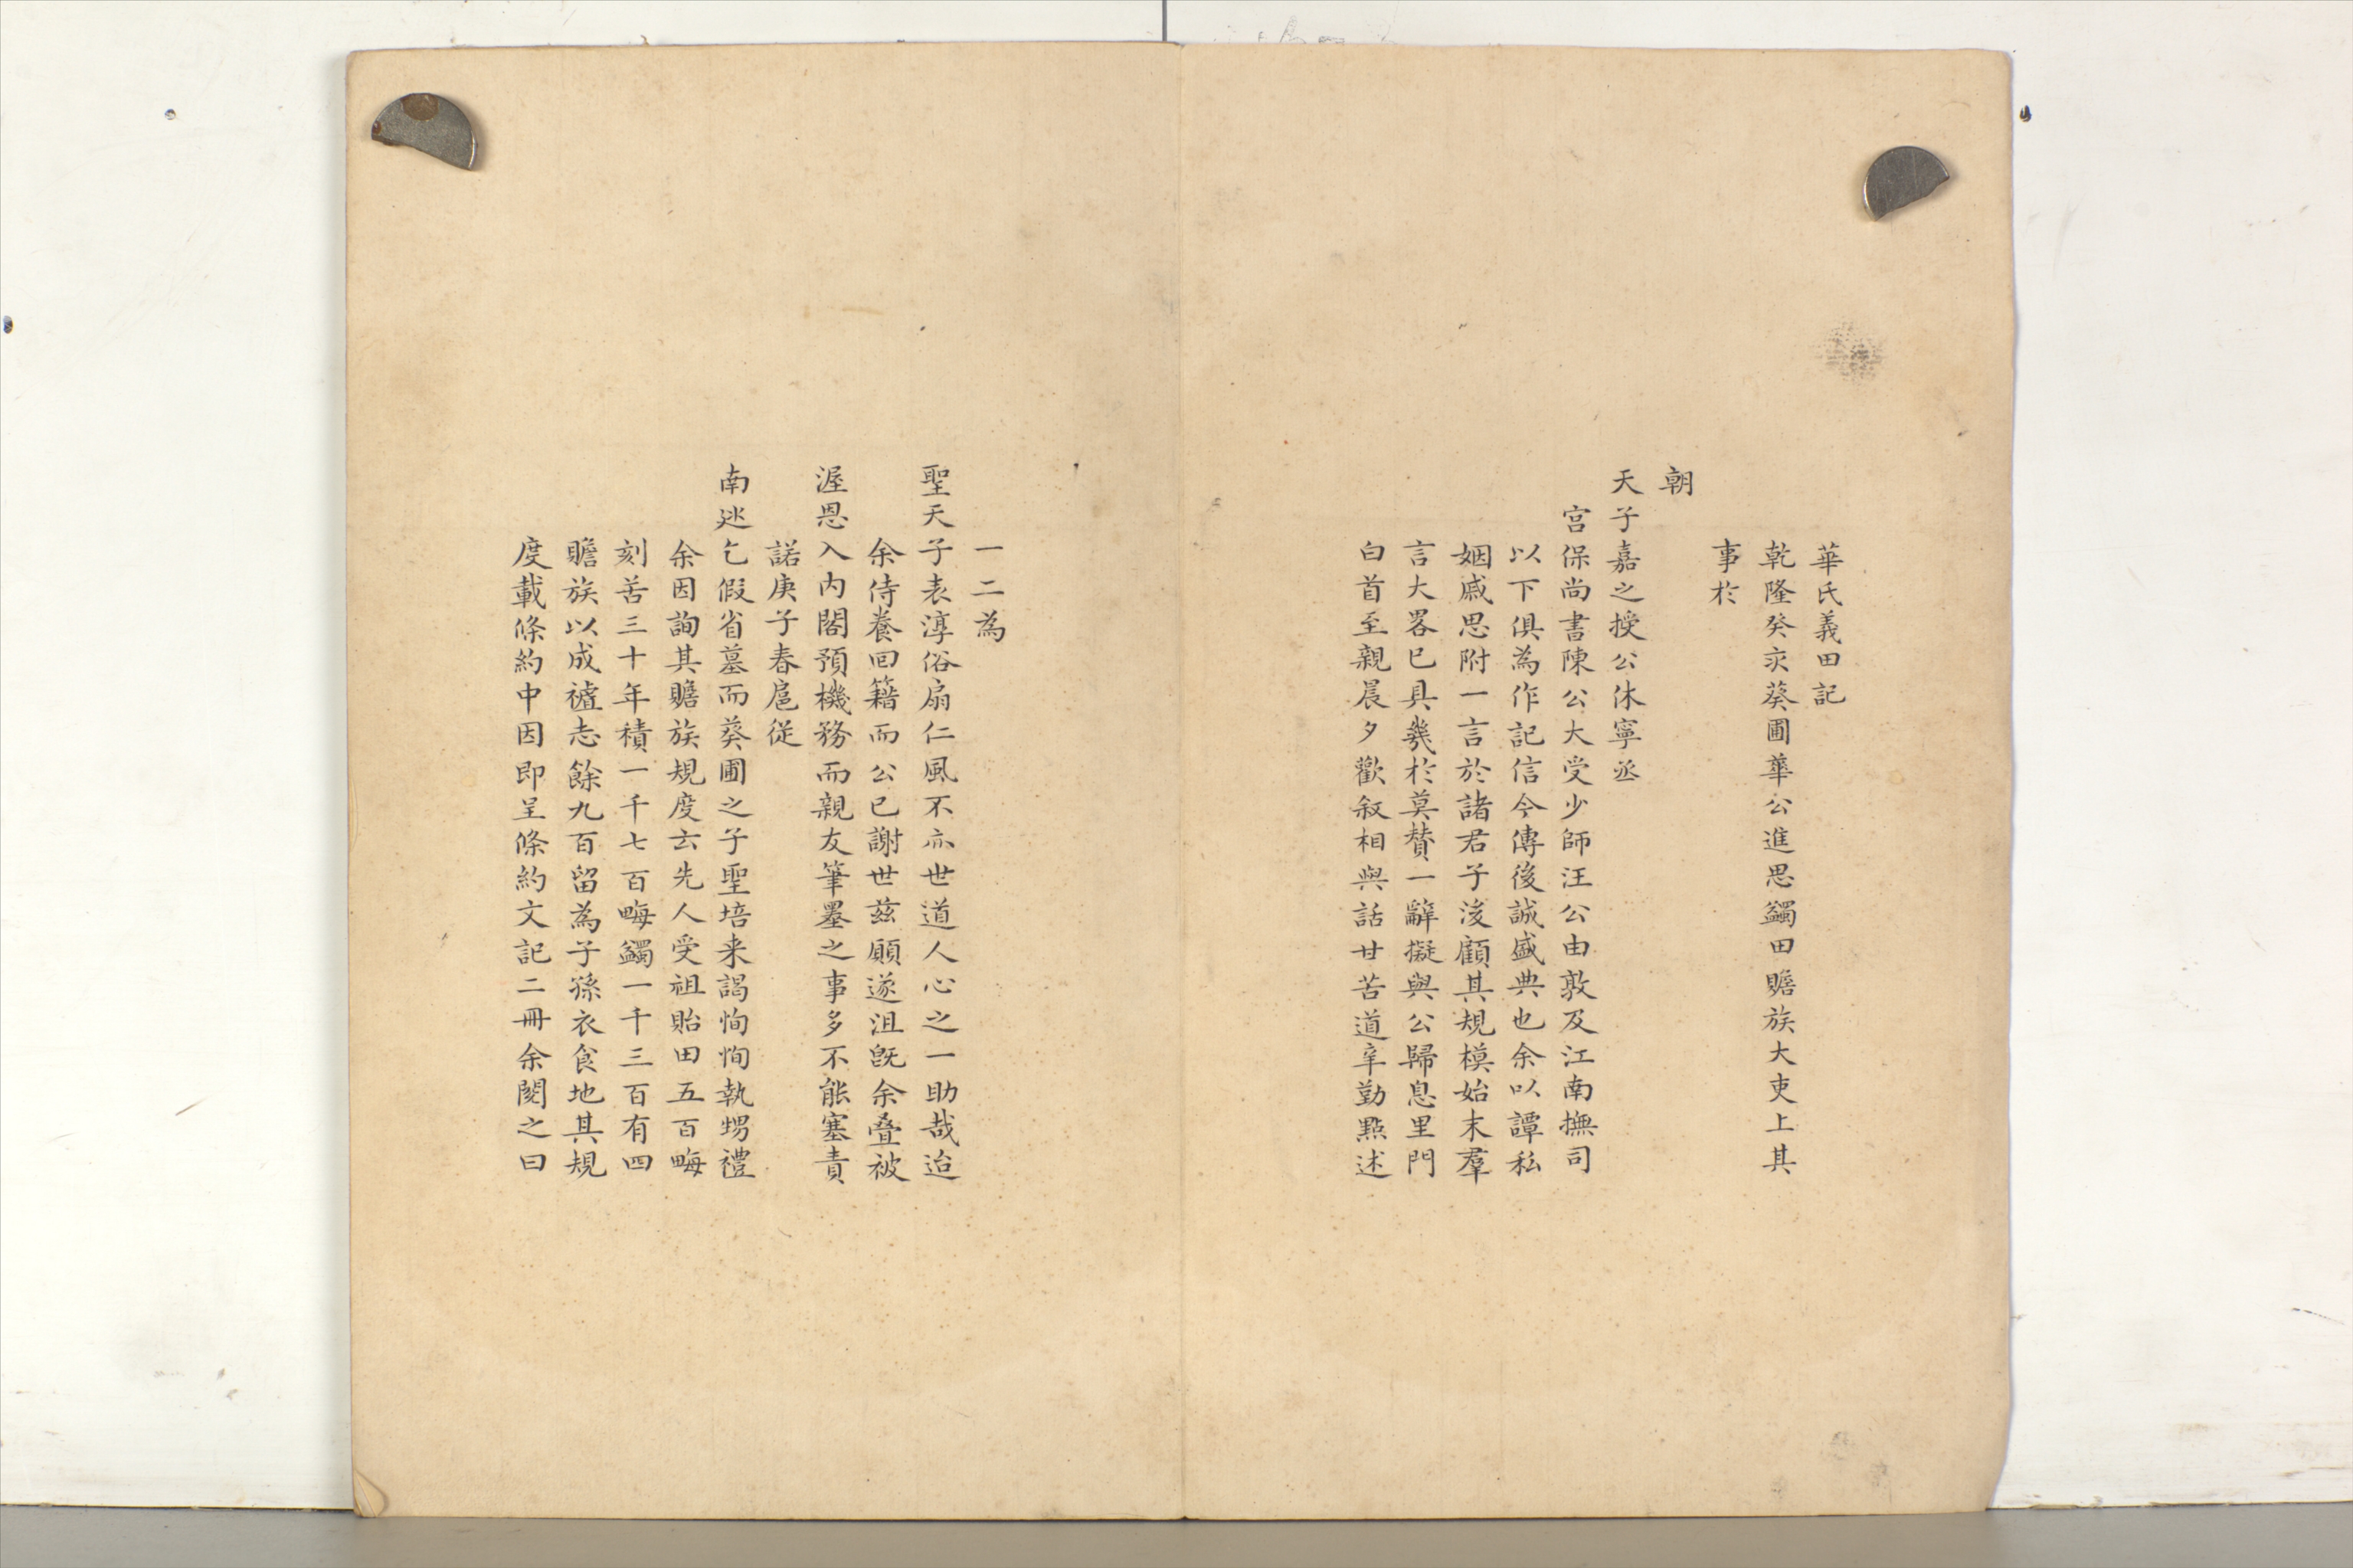 華氏義田記
乾隆癸亥葵圃華公進思蠲田贍族大吏上其
事於
朝
天子嘉之授公休寧丞
宮保尚書陳公大受少師汪公由敦及江南撫司
以下俱為作記信今傳後誠盛典也余以譚私
姻戚思附一言於諸君子後顧其規模始末羣
言大畧已具幾於莫賛一辭擬與公歸息里門
白首至親晨夕歡叙相與話甘苦道辛勤點述
一二為
聖天子表淳俗扇仁風不亦世道人心之一助哉迨
余侍養回籍而公已謝世茲願遂沮旣余疊被
渥恩入内閣預機務而親友筆墨之事多不能塞責
諾庚子春扈從
南巡乞假省墓而葵圃之子聖培来謁恂恂執甥禮
余因詢其贍族規度云先人受祖貽田五百畮
刻苦三十年積一千七百畮蠲一千三百有四
贍族以成禮志餘九百留為子孫衣食地其規
度載條約中因即呈條約文記二冊余閱之曰